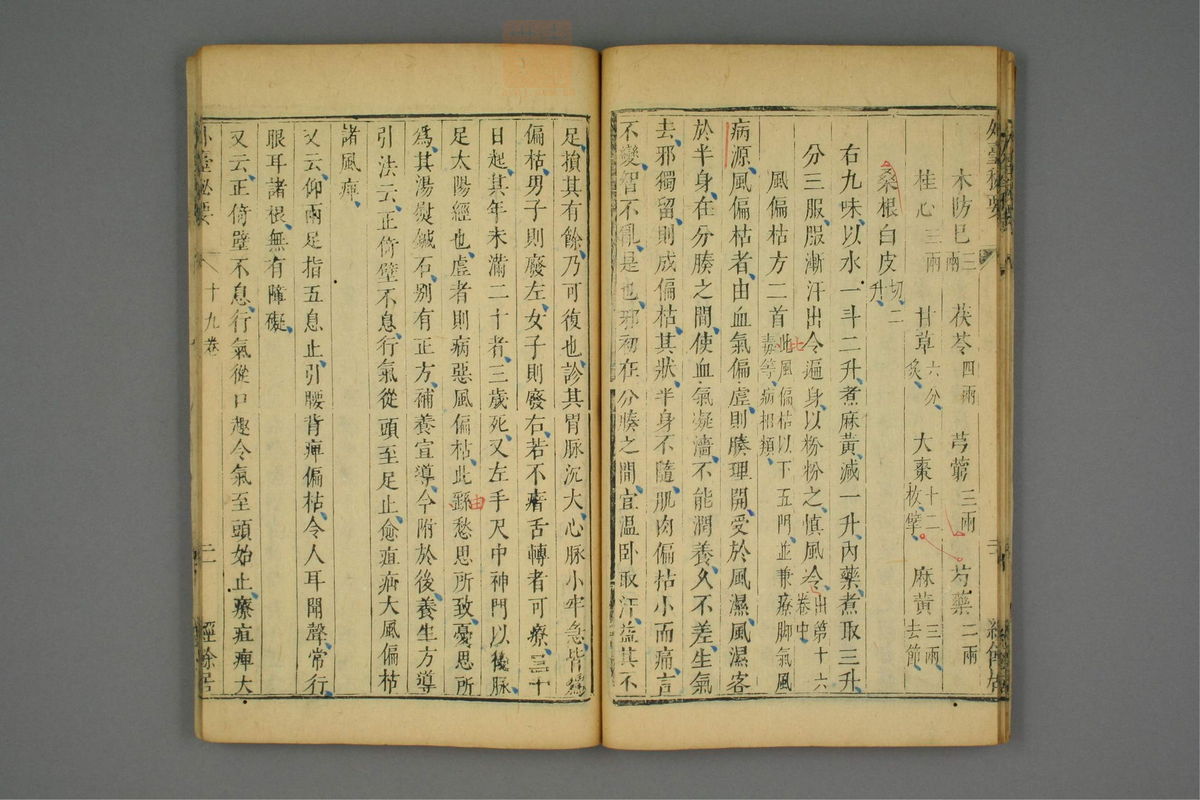 木防已三兩 茯苓四兩 芎藭三兩 芍藥二兩
桂心三兩 甘草六分炙 大棗十二枚擘 麻黃三兩去節
桑根白皮切二升
右九味以水一斗二升煮麻黃減一升內藥煮取三升
分三服服漸汗出令遍身以粉粉之慎風冷出第十六卷中
風偏枯方二首此風偏枯以下五門並兼療脚氣風毒等病相類
病源風偏枯者由血氣偏虛則腠理開受於風濕風濕客
於半身在分腠之間使血氣凝濇不能潤養久不差生氣
去邪獨留則成偏枯其狀半身不隨肌肉偏枯小而痛言
不變智不亂是也邪初在分腠之間宜溫卧取汗益其不
足損其有餘乃可復也診其胃脉沉大心脉小牢急皆爲
偏枯男子則廢左女子則廢右若不瘖舌轉者可療三十
日起其年未滿二十者三歲死又左手尺中神門以後脉
足太陽經也虛者則病惡風偏枯此繇愁思所致憂思所
爲其湯熨鍼石别有正方補養宣導今附於後養生方導
引法云正倚壁不息行氣從頭至足止愈疽疝大風偏枯
諸風痺
又云仰兩足指五息止引腰背痺偏枯令人耳聞聲常行
眼耳諸根無有障礙
又云正倚壁不息行氣從口趣令氣至頭始止療疽痺大
外臺秘要 十九卷 二 經餘居